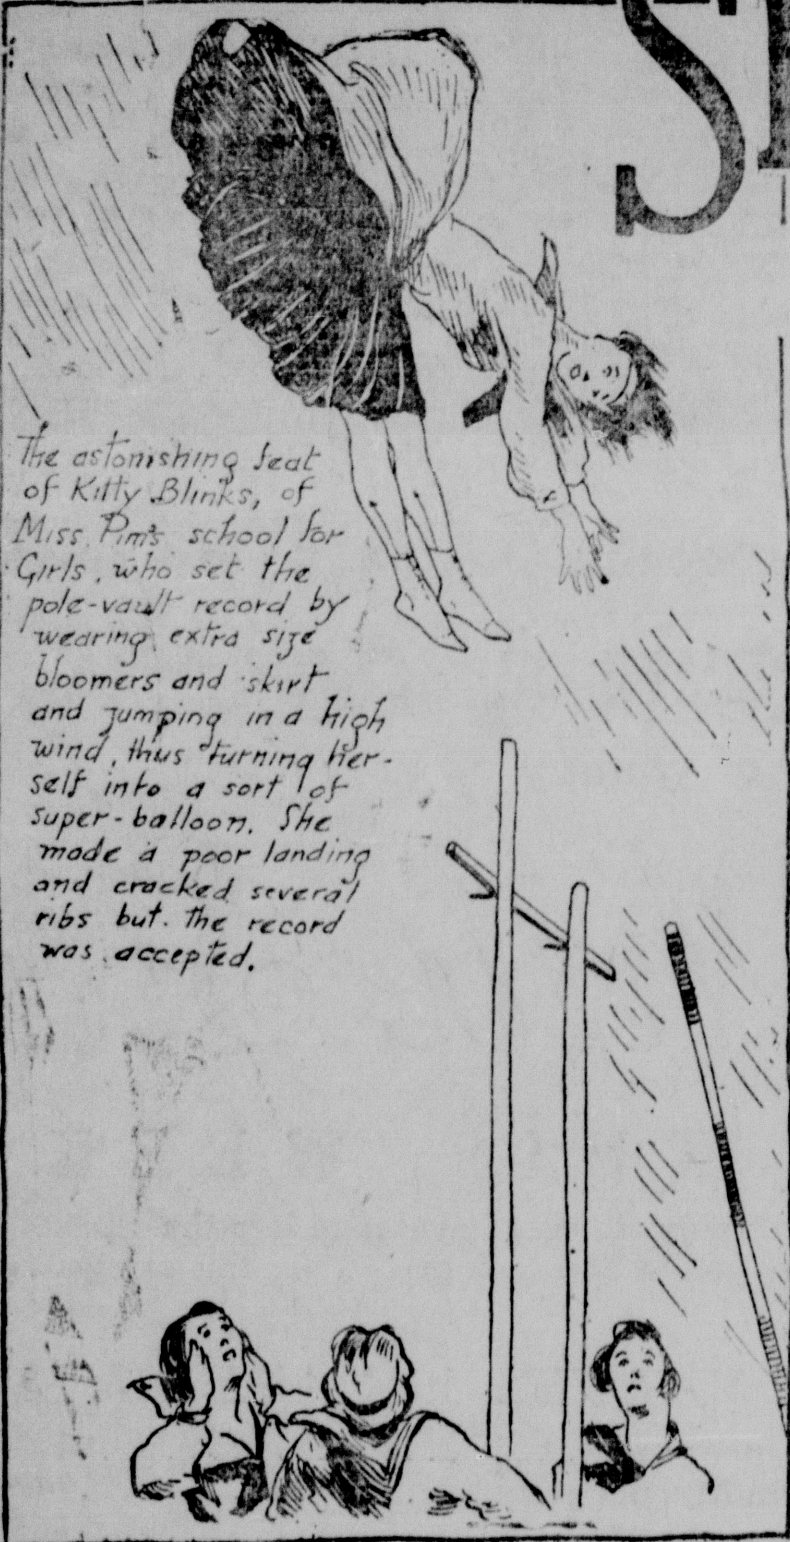 ST
The astonishing feat
of Kitty Blinks, of
Miss Pim's school for
Girls, who set the
pole-vault record by
wearing extra size
bloomers and skirt
and jumping in a high
wind, thus turning her-
self into a sort of
super-balloon. She
made a poor landing
and cracked several
ribs but the record
was accepted.